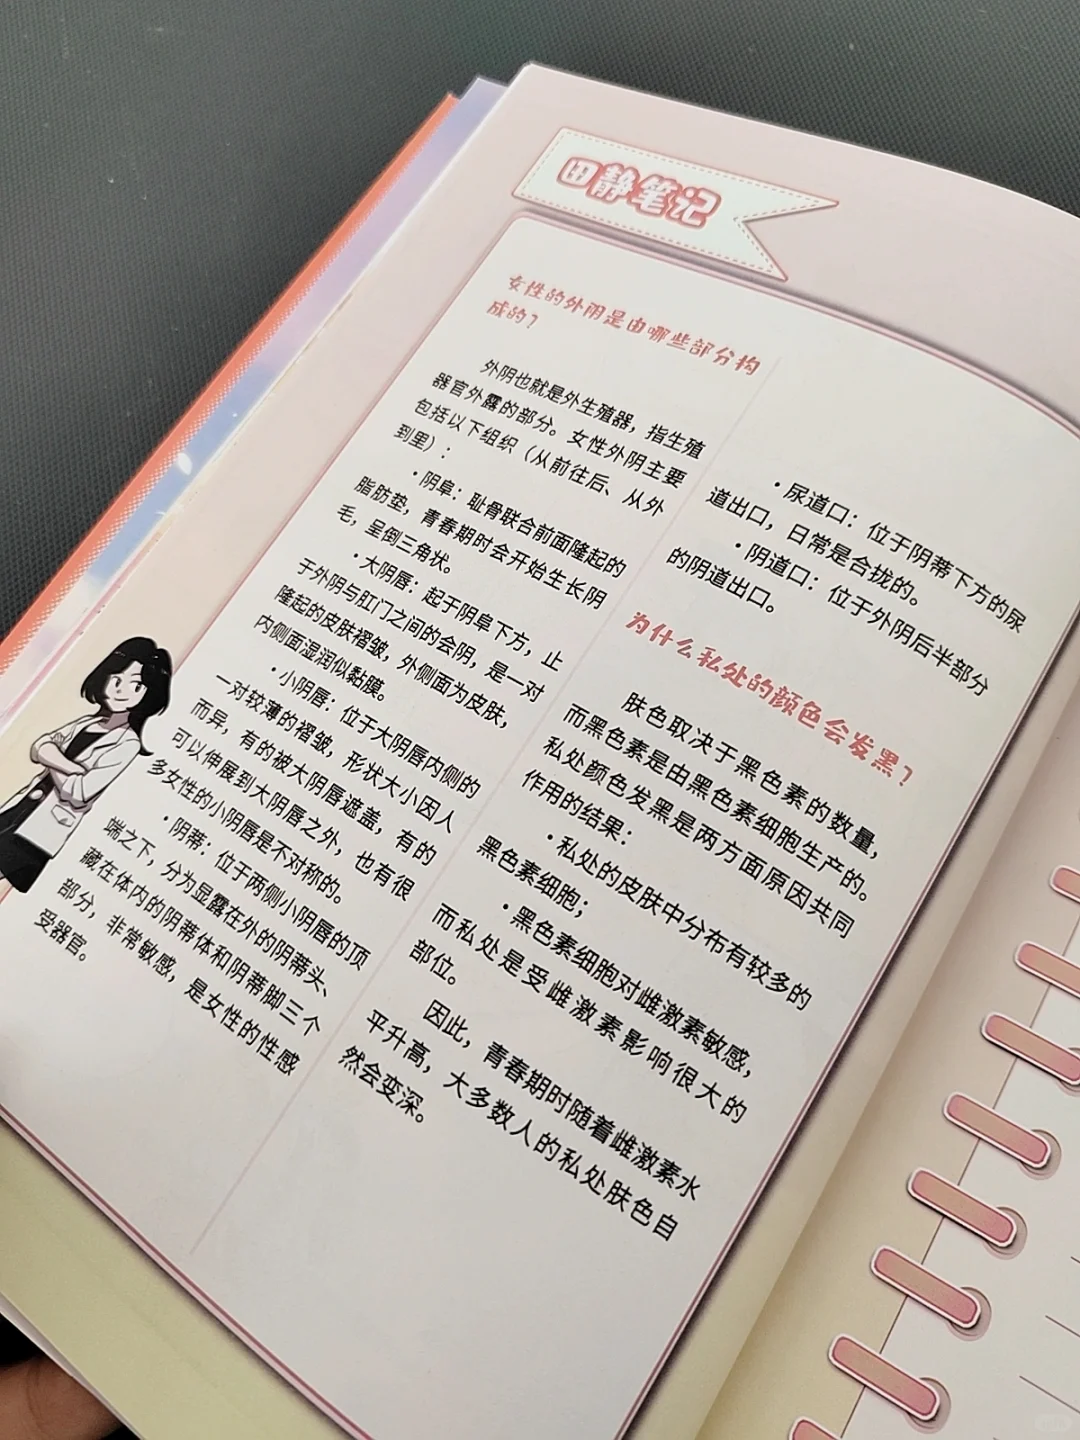 田静笔记
女性的外阴是由哪些部分构
成的？
外阴也就是外生殖器，指生殖
器官外露的部分。女性外阴主要
包括以下组织（从前往后、从外
到里）：
·阴阜：耻骨联合前面隆起的
脂肪垫，青春期时会开始生长阴
毛，呈倒三角状。
·大阴唇：起于阴阜下方，止
于外阴与肛门之间的会阴，是一对
隆起的皮肤褶皱，外侧面为皮肤，
内侧面湿润似黏膜。
·小阴唇：位于大阴唇内侧的
一对较薄的褶皱，形状大小因人
而异，有的被大阴唇遮盖，有的
可以伸展到大阴唇之外，也有很
多女性的小阴唇是不对称的。
·阴蒂：位于两侧小阴唇的顶
端之下，分为显露在外的阴蒂头、
藏在体内的阴蒂体和阴蒂脚三个
部分，非常敏感，是女性的性感
受器官。
·尿道口：位于阴蒂下方的尿
道出口，日常是合拢的。
·阴道口：位于外阴后半部分
的阴道出口。
为什么私处的颜色会发黑？
肤色取决于黑色素的数量，
而黑色素是由黑色素细胞生产的。
私处颜色发黑是两方面原因共同
作用的结果：
·私处的皮肤中分布有较多的
黑色素细胞；
·黑色素细胞对雌激素敏感，
而私处是受雌激素影响很大的
部位。
因此，青春期时随着雌激素水
平升高，大多数人的私处肤色自
然会变深。